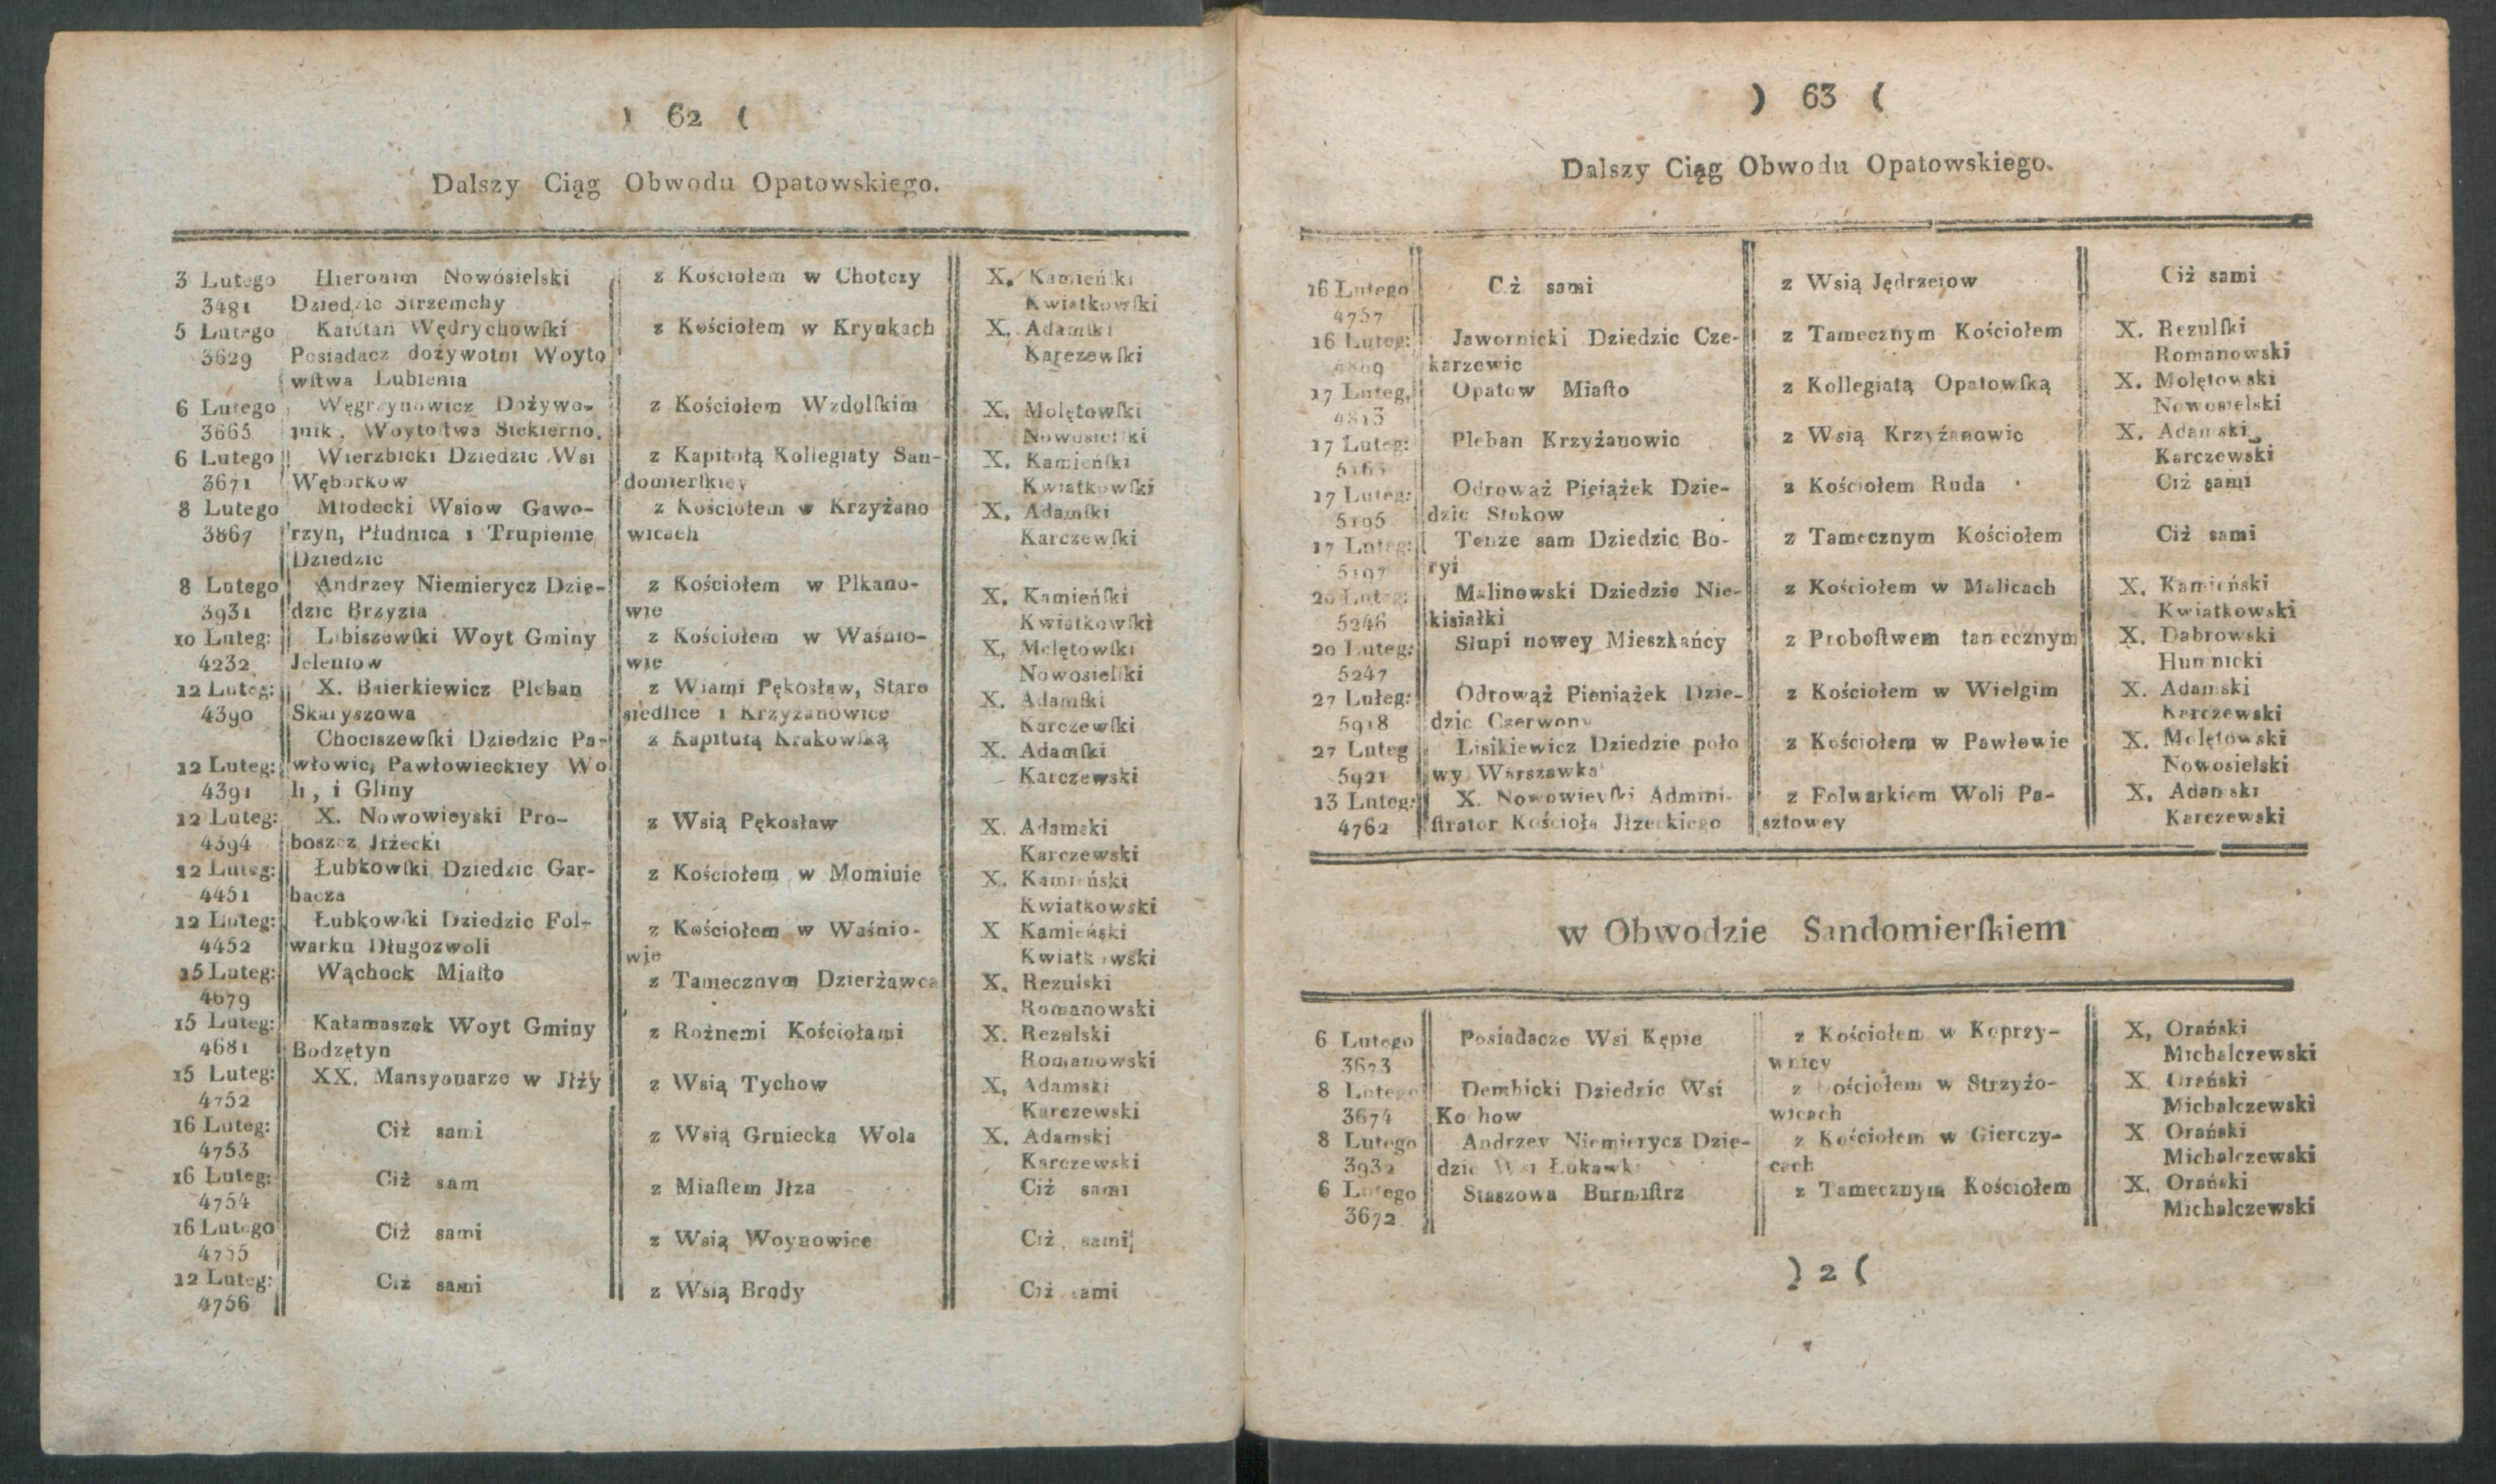 ) 62 (
Dalszy Ciąg Obwodu Opatowskiego.
3 Lutego Hieronim Nowosielski z Kościołem w Chotczy X. Kamieńſki
3481 Dziedzic Strzemchy Kwiatkowſki
5 Lutego Kaietan Wędrychowſki z Kościołem w Krynkach X. Adamſki
3629 Posiadacz dożywotni Woyto Karczewſki
wſtwa Lubienia
6 Lutego Węgrzynowicz Dożywo- z Kościołem Wzdolſkim X. Molętowſki
3665 tnik, Woytoſtwa Siekierno. Nowosielſki
6 Lutego Wierzbicki Dziedzic Wsi z Kapitołą Kollegiaty San- X. Kamieńſki
3671 Węborkow domierſkiey Kwiatkowſki
8 Lutego Młodecki Wsiow Gawo- z Kościołem w Krzyżano X. Adamſki
3867 rzyn, Płudnica i Trupienie wicach Karczewſki
Dziedzic
8 Lutego Andrzey Niemierycz Dzie- z Kościołem w Plkano- X. Kamieńſki
3931 dzic Brzyzia wie Kwiatkowſki
10 Luteg: Libiszewſki Woyt Gminy z Kościołem w Waśnio- X, Molętowſki
4232 Jeleniow wie Nowosielſki
12 Luteg: X. Baierkiewicz Pleban z Wsiami Pękosław, Staro X. Adamſki
4390 Skaryszowa siedlice i Krzyżanowice Karczewſki
Chociszewſki Dziedzic Pa- z Kapitułą Krakowſką X. Adamſki
12 Luteg: włowic, Pawłowieckiey Wo Karczewski
4391 li, i Gliny
12 Luteg: X. Nowowieyski Pro- z Wsią Pękosław X. Adamski
4394 boszcz Jłżecki Karczewski
12 Luteg: Łubkowſki Dziedzic Gar- z Kościołem w Mominie X. Kamieński
4451 bacza Kwiatkowski
12 Luteg: Łubkowſki Dziedzic Fol- z Kościołem w Waśnio- X Kamieński
4452 warku Długozwoli wie Kwiatkowski
15 Luteg: Wąchock Miaſto z Tamecznym Dzierżawca X. Rezulski
4679 Romanowski
15 Luteg: Kałamaszek Woyt Gminy z Rożnemi Kościołami X. Rezulski
4681 Bodzętyn Romanowski
15 Luteg: XX. Mansyonarze w Jłży z Wsią Tychow X, Adamski
4752 Karczewski
16 Luteg: Ciż sami z Wsią Gruiecka Wola X. Adamski
4753 Karczewski
16 Luteg: Ciż sam z Miaſtem Jłza Ciż sami
4754
16 Lutego Ciż sami z Wsią Woynowice Ciż sami
4755
12 Luteg: Ciż sami z Wsią Brody Ciż sami
4756
) 63 (
Dalszy Ciąg Obwodu Opatowskiego.
16 Lutego Ciż sami z Wsią Jędrzeiow Ciż sami
4757
16 Luteg: Jawornicki Dziedzic Cze- z Tamecznym Kościołem X. Rezulſki
4809 karzewic Romanowski
17 Luteg, Opatow Miaſto z Kollegiatą Opatowſką X. Molętowski
4813 Nowosielski
17 Luteg: Pleban Krzyżanowic z Wsią Krzyżanowic X. Adamski
Karczewski
17 Luteg: Odrowąż Pieiążek Dzie- z Kościołem Ruda Ciż sami
5195 dzic Stokow
17 Luteg: Tenże sam Dziedzic Bo- z Tamecznym Kościołem Ciż sami
5197 ryi
20 Luteg: Malinowski Dziedzic Nie- z Kościołem w Malicach X. Kamieński
5246 kisiałki Kwiatkowski
20 Luteg: Słupi nowey Mieszkańcy z Proboſtwem tamecznym X. Dabrowski
5247 Humnicki
27 Luteg: Odrowąż Pieniążek Dzie- z Kościołem w Wielgim X. Adamski
5918 dzic Czerwony Karczewski
27 Luteg Lisikiewicz Dziedzic poło z Kościołem w Pawłowie X. Molętowski
5921 wy Warszawka Nowosielski
13 Luteg: X. Nowowieyſki Admini- z Folwarkiem Woli Pa- X. Adamski
4762 ſtrator Kościoła Jłżeckiego sztowey Karczewski
w Obwodzie Sandomierſkiem
6 Lutego Posiadacze Wsi Kępie z Kościołem w Koprzy- X, Orański
3673 wnicy Michalczewski
8 Lutego Dembicki Dziedzic Wsi z Kościołem w Strzyżo- X. Orański
3674 Kochow wicach Michalczewski
8 Lutego Andrzey Niemierycz Dzie- z Kościołem w Gierczy- X Orański
3932 dzic Wsi Łukawki cach Michalczewski
6 Lutego Staszowa Burmiſtrz z Tamecznym Kościołem X. Orański
3672 Michalczewski
) 2 (